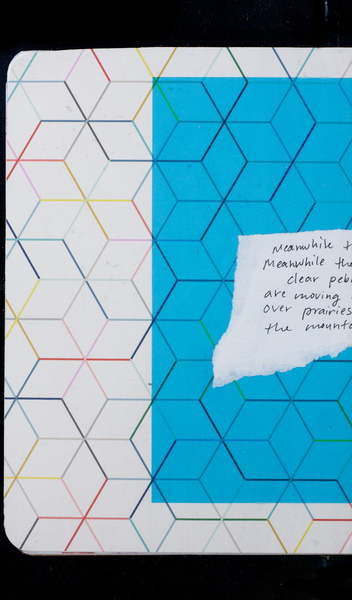 Meanwhile t
Meanwhile the
clear peb
are moving
over prairies
the mounta